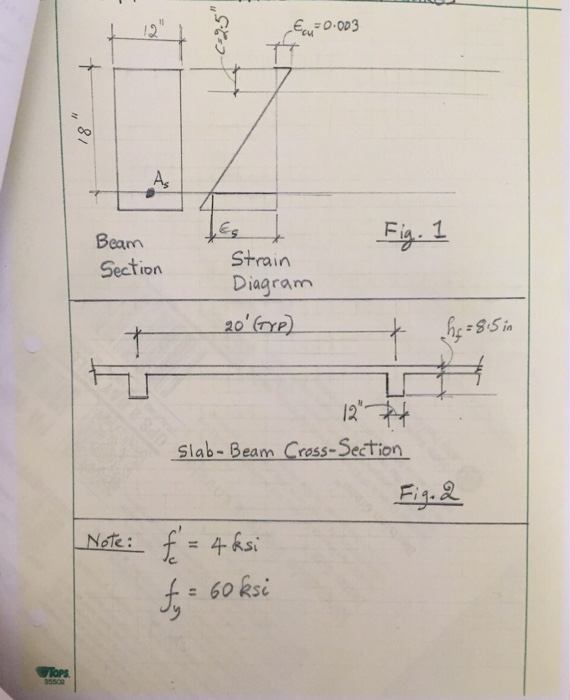 12"
C=2.5"
Ɛcu = 0.003
18"
As
Ɛs
Beam
Section
Strain
Diagram
Fig. 1
20' (TYP)
hf = 8.5 in
12"
Slab-Beam Cross-Section
Fig. 2
Note: f'c = 4 ksi
fy = 60 ksi
TOPS
35502